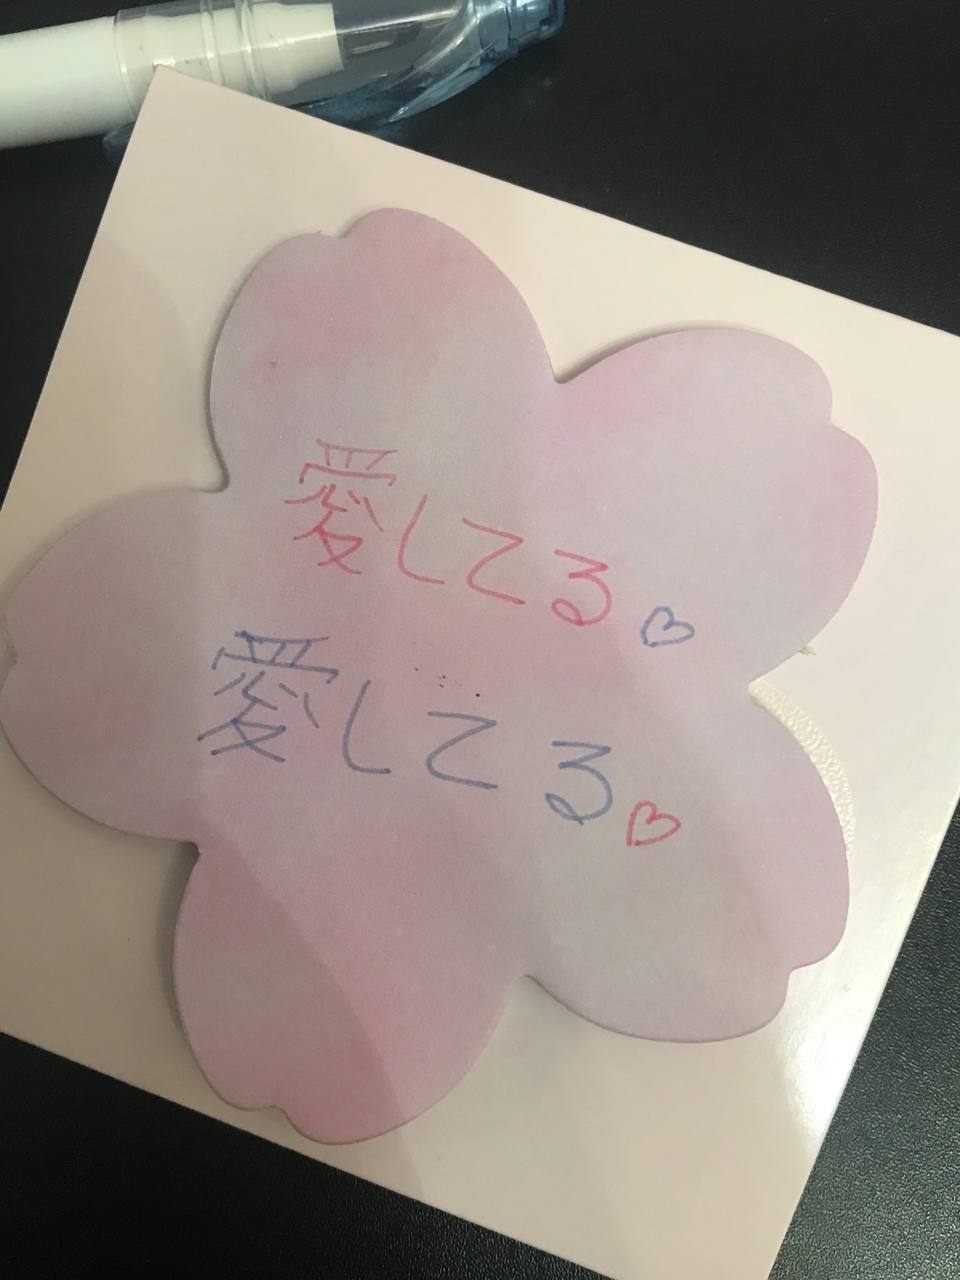 愛してる♡
愛してる♡